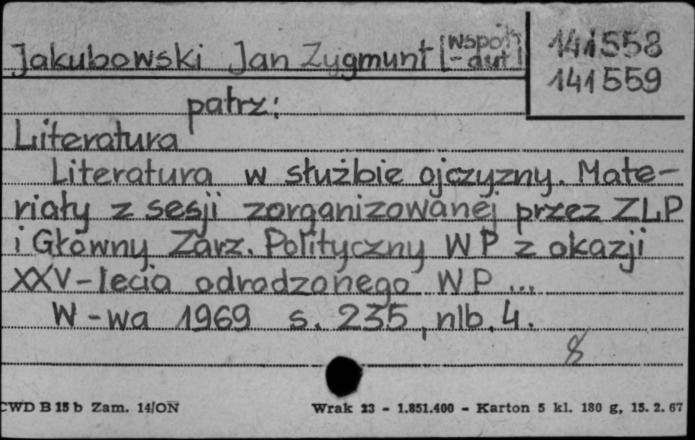 Jakubowski Jan Zygmunt [współ-
- aut]
141558
141559
patrz:
Literatura
Literatura w służbie ojczyzny. Mate-
riały z sesji zorganizowanej przez ZLP
i Główny Zarz. Polityczny WP z okazji
XXV-lecia odrodzonego WP ...
W-wa 1969 s. 235, nlb. 4.
8
CWD B 15 b Zam. 14/ON Wrak 23 - 1.851.400 - Karton 5 kl. 180 g, 15. 2. 67